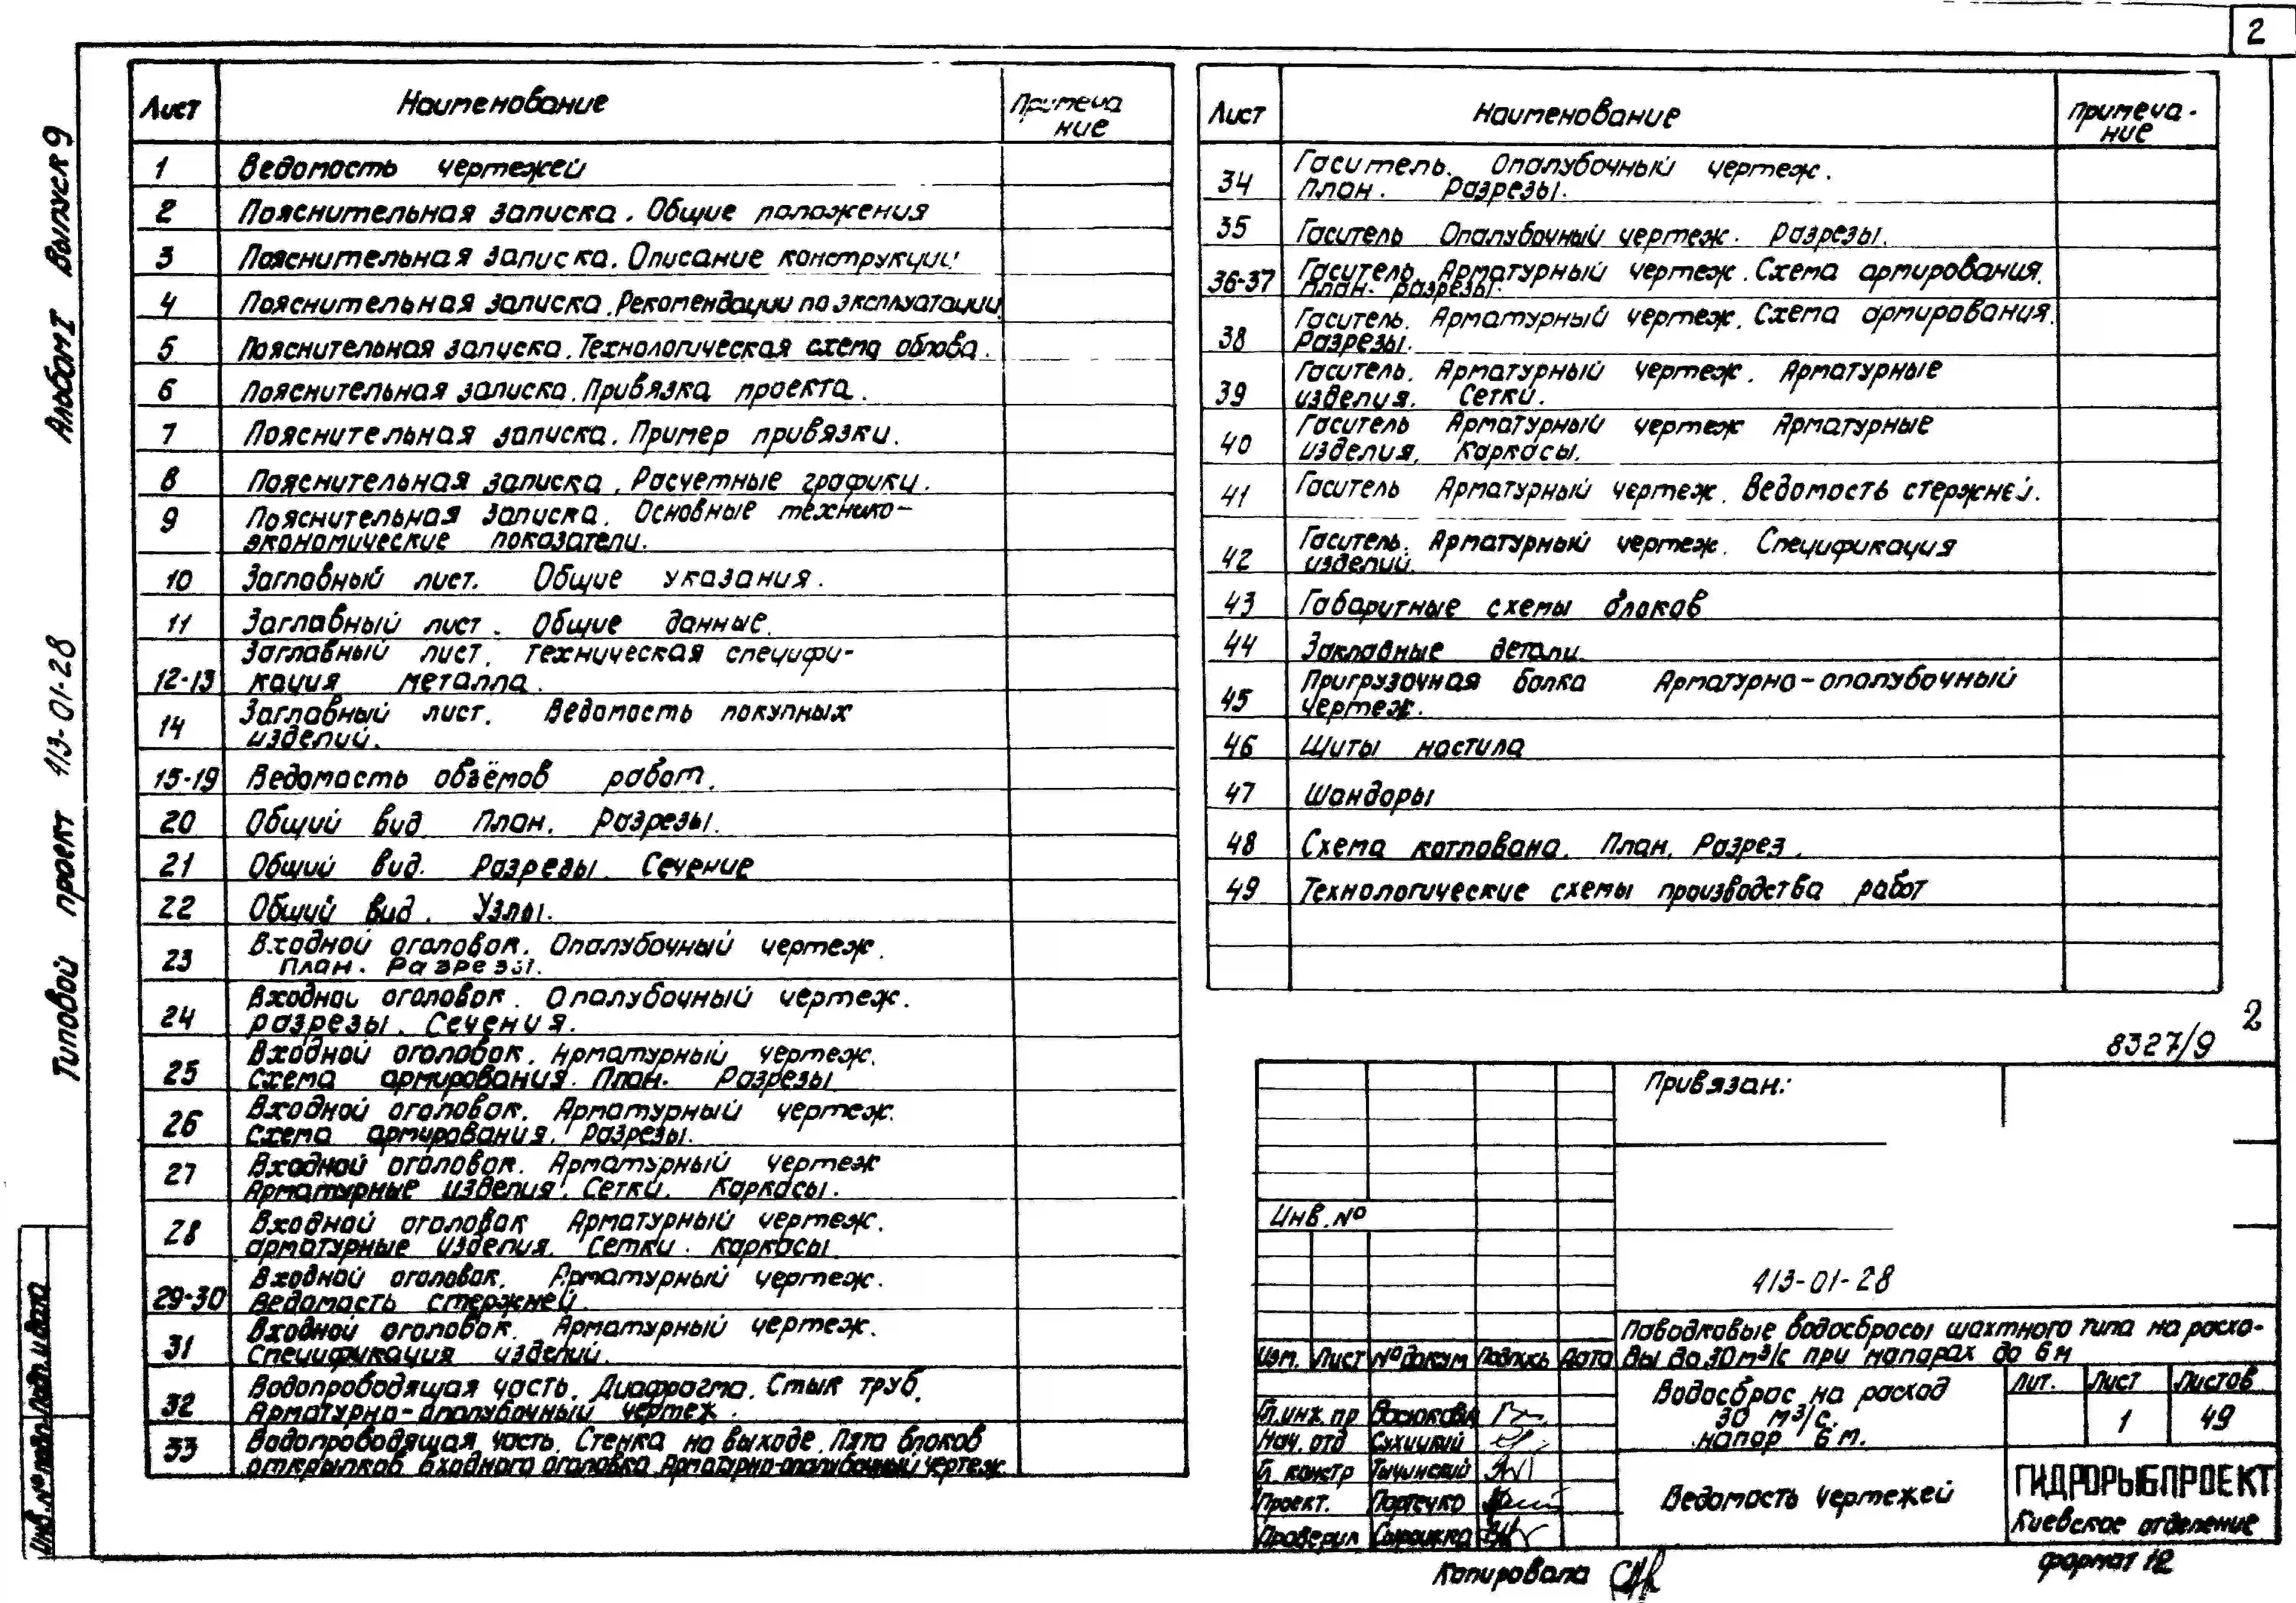 2
Альбом I Выпуск 9
Типовой проект 413-01-28
Инв.№ подл. Подп. и дата
Лист Наименование Примечание
1 Ведомость чертежей
2 Пояснительная записка. Общие положения
3 Пояснительная записка. Описание конструкции
4 Пояснительная записка. Рекомендации по эксплуатации
5 Пояснительная записка. Технологическая схема облова.
6 Пояснительная записка. Привязка проекта.
7 Пояснительная записка. Пример привязки.
8 Пояснительная записка. Расчетные графики.
9 Пояснительная записка. Основные технико-
экономические показатели.
10 Заглавный лист. Общие указания.
11 Заглавный лист. Общие данные.
12-13 Заглавный лист. Техническая специфи-
кация металла.
14 Заглавный лист. Ведомость покупных
изделий.
15-19 Ведомость объёмов работ.
20 Общий вид. План. Разрезы.
21 Общий вид. Разрезы. Сечение
22 Общий вид. Узлы.
23 Входной оголовок. Опалубочный чертеж.
План. Разрезы.
24 Входной оголовок. Опалубочный чертеж.
разрезы. Сечения.
25 Входной оголовок. Арматурный чертеж.
Схема армирования. План. Разрезы
26 Входной оголовок. Арматурный чертеж.
Схема армирования. Разрезы.
27 Входной оголовок. Арматурный чертеж
Арматурные изделия. Сетки. Каркасы.
28 Входной оголовок Арматурный чертеж.
арматурные изделия. Сетки. Каркасы
29-30 Входной оголовок. Арматурный чертеж.
Ведомость стержней.
31 Входной оголовок. Арматурный чертеж.
Спецификация изделий.
32 Водопроводящая часть. Диафрагма. Стык труб.
Арматурно-опалубочный чертеж.
33 Водопроводящая часть. Стенка на выходе. Пята блоков
открылков входного оголовка. Арматурно-опалубочный чертеж
Лист Наименование Примеча-
ние
34 Гаситель. Опалубочный чертеж.
План. Разрезы.
35 Гаситель Опалубочный чертеж. Разрезы.
36-37 Гаситель. Арматурный чертеж. Схема армирования.
План. разрезы.
38 Гаситель. Арматурный чертеж. Схема армирования.
Разрезы.
39 Гаситель. Арматурный чертеж. Арматурные
изделия. Сетки.
40 Гаситель Арматурный чертеж Арматурные
изделия. Каркасы.
41 Гаситель Арматурный чертеж. Ведомость стержней.
42 Гаситель. Арматурный чертеж. Спецификация
изделий.
43 Габаритные схемы блоков
44 Закладные детали
45 Пригрузочная балка Арматурно-опалубочный
чертеж.
46 Щиты настила
47 Шандоры
48 Схема котлована. План. Разрез.
49 Технологические схемы производства работ
8327/9 2
Привязан:
Инв.№
413-01-28
Паводковые водосбросы шахтного типа на расхо-
ды до 30м³/с при напорах до 6м
Изм. Лист № докум Подпись Дата
Водосброс на расход
30 м³/с.
напор 6м.
Лит. Лист Листов
1 49
Гл.инж.пр
Нач. отд Сухицкий
Гл. констр Тычинский
Проект.
Проверил
Ведомость чертежей
ГИДРОРЫБПРОЕКТ
Киевское отделение
Копировала
формат 12